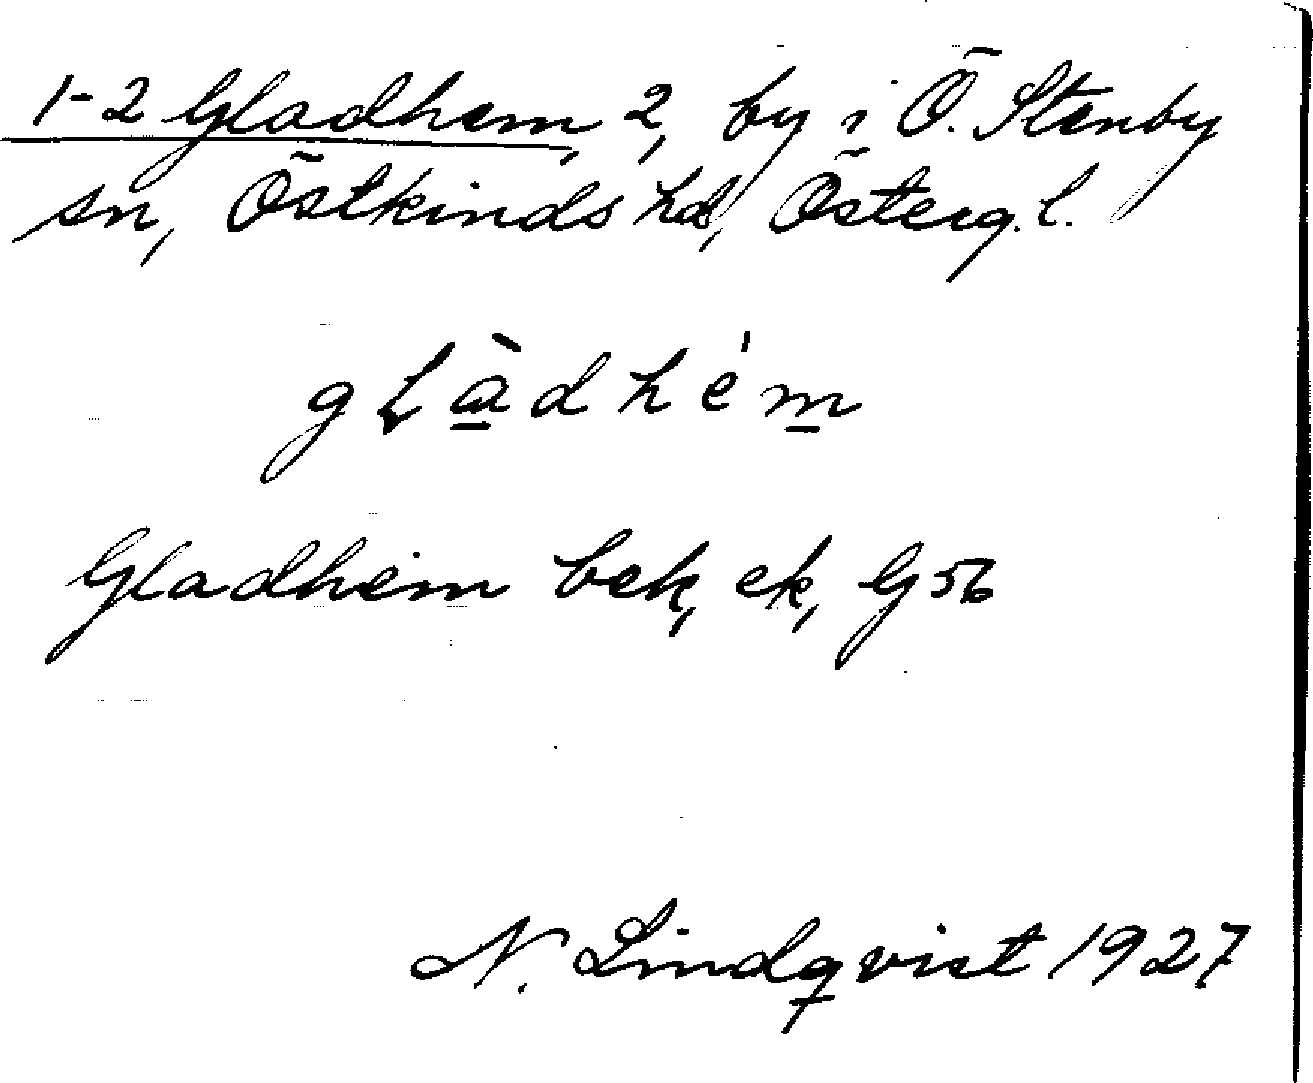 1-2 Gladhem, 2, by i Ö. Stenby
sn, Östkinds hd, Österg. l.
gLàdhém
Gladhem bek, ek, G56
N. Lindqvist 1927